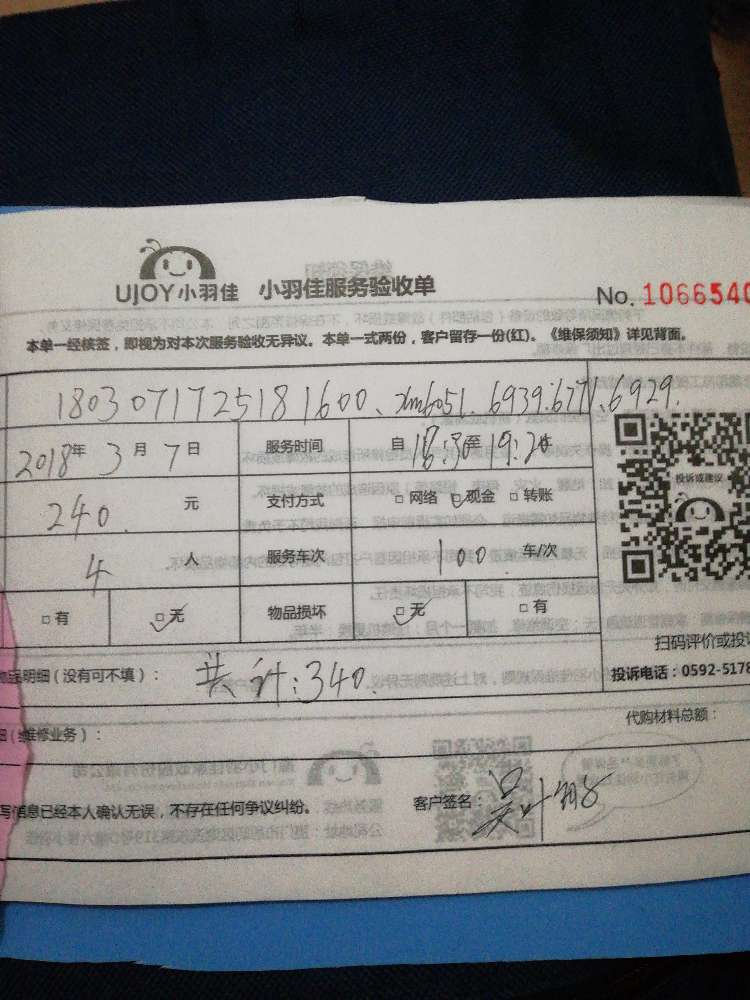 UJOY小羽佳 小羽佳服务验收单
No. 1066540
本单一经核签，即视为对本次服务验收无异议。本单一式两份，客户留存一份(红)。《维保须知》详见背面。
18030717251 81600、xm6051.6939.6771.6929.
2018年 3月 7日 服务时间 自18:30至19:20
投诉或建议
240 元 支付方式 网络 现金 转账
4 人 服务车次 100 车/次
有 无 物品损坏 无 有
扫码评价或投
明细（没有可不填）： 共计：340.
投诉电话：0592-5178
代购材料总额：
(维修业务)：
写信息已经本人确认无误，不存在任何争议纠纷。 客户签名：